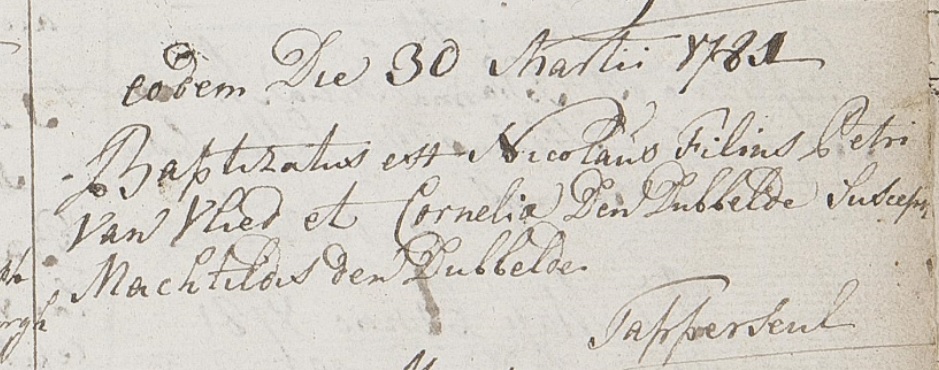 eodem Die 30 Martii 1781
Baptizatus est Nicolaus Filius Petri
Van Vlied et Cornelia Den Dubbelde Suscep
Machtildis den Dubbelde